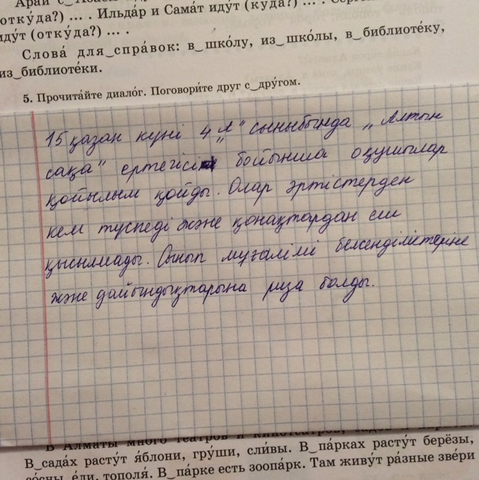 Арай с_
(отку́да?) ... . Ильда́р и Сама́т иду́т (куда́?) ... .
иду́т (отку́да?) ... .
Слова́ для_спра́вок: в_шко́лу, из_шко́лы, в_библиоте́ку,
из_библиоте́ки.
5. Прочита́йте диало́г. Поговори́те друг с_дру́гом.
15 қазан күні 4 „А" сыныбында „Алтын
сақа" ертегісі бойынша оқушылар
қойылым қойды. Олар әртістерден
кем түспеді және қонақтардан еш
қысылмады. Сынып мұғалімі белсенділіктеріне
және дайындықтарына риза болды.
В_Алматы́ мно́го теа́тров и кинотеа́тров,
В_сада́х расту́т я́блони, гру́ши, сли́вы. В_па́рках расту́т берёзы,
со́сны, е́ли, тополя́. В_па́рке есть зоопа́рк. Там живу́т ра́зные зве́ри